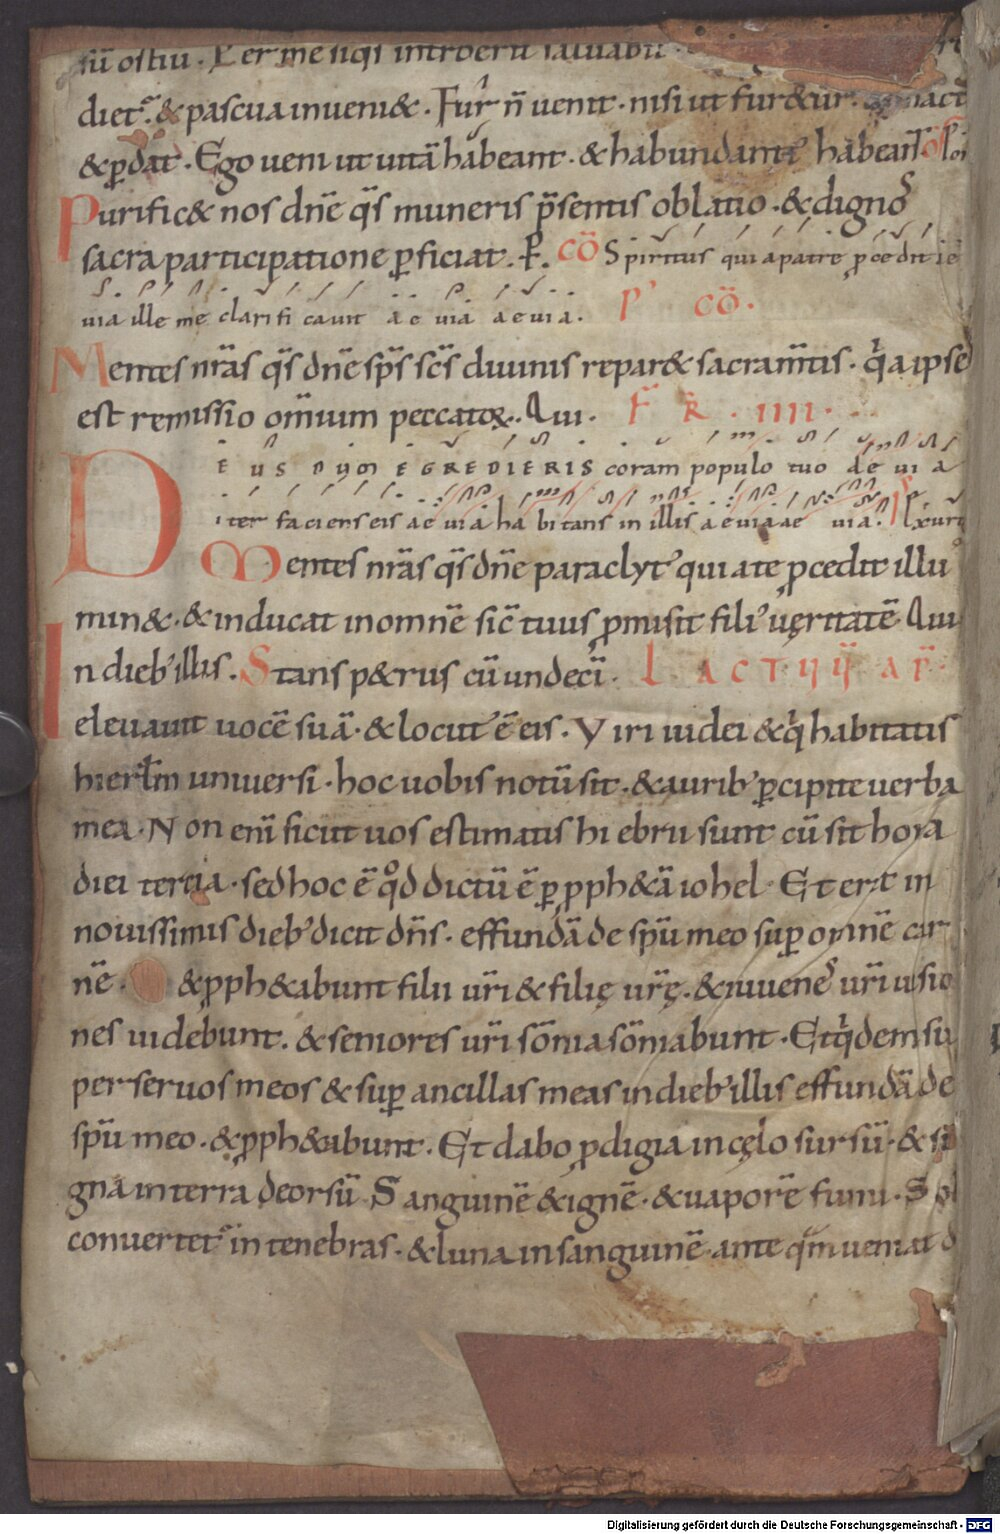 sū ostiū. Per me siqs introerit saluabit
diet᷑. & pascua inueni&. Fur n̄ uenit. nisi ut fur&ur. mact&
& ꝑdat. Ego ueni ut uitā habeant. & habundanti᷑ habeant.
Purific& nos dn̄e q̄s muneris p̄sentis oblatio. & dignos
sacra participatione ꝑficiat. P. CŌ Spiritus qui a patre ꝓcedit
uia ille me clarificauit aeuia aeuia. P' CŌ.
Mentes nr̄as q̄s dn̄e sp̄s sc̄s diuinis repar& sacram̄tis. q̇a ipse
est remissio om̄ium peccatoꝝ. Qui. F̄ R̄. IIII.
DEUS DUM EGREDIERIS coram populo tuo aeuia
iter faciens eis aeuia habitans in illis aeuia aeuia. P̄S Exurg
Mentes nr̄as q̄s dn̄e paraclyt᷒ qui a te ꝓcedit illu
min&. & inducat in omnē sic̄ tuus ꝓmisit fili᷒ uęritatē. Qui
In dieb᷒ illis. Stans p&rus cū undeci. L. ACTUŪ AP̄.
eleuauit uocē suā. & locut᷒ ē eis. Viri iudei & q̇ habitatis
hierl̄m uniuersi. hoc uobis notū sit. & aurib᷒ ꝑcipite uerba
mea. Non eni ̄ sicut uos estimatis hi ebrii sunt cū sit hora
diei tercia. sed hoc ē qd̊ dictū ē ꝑ ꝓph&ā iohel. Et erit in
nouissimis dieb᷒ dicit dn̄s. effundā de spū meo suꝑ omnē car
nē. & ꝓph&abunt filii ur̄i & filię ur̄ę. & iuuenes ur̄i uisio
nes uidebunt. & seniores ur̄i sōnia sōniabunt. Et q̇dem su
per seruos meos & suꝑ ancillas meas in dieb᷒ illis effundā de
spū meo. & ꝓph&abunt. Et dabo ꝓdigia in cęlo sursū. & si
gna in terra deorsū. Sanguinē & ignē. & uaporē fumi. Sol
conuertet᷑ in tenebras. & luna in sanguinē. ante qm̄ ueniat d
Digitalisierung gefördert durch die Deutsche Forschungsgemeinschaft - DFG